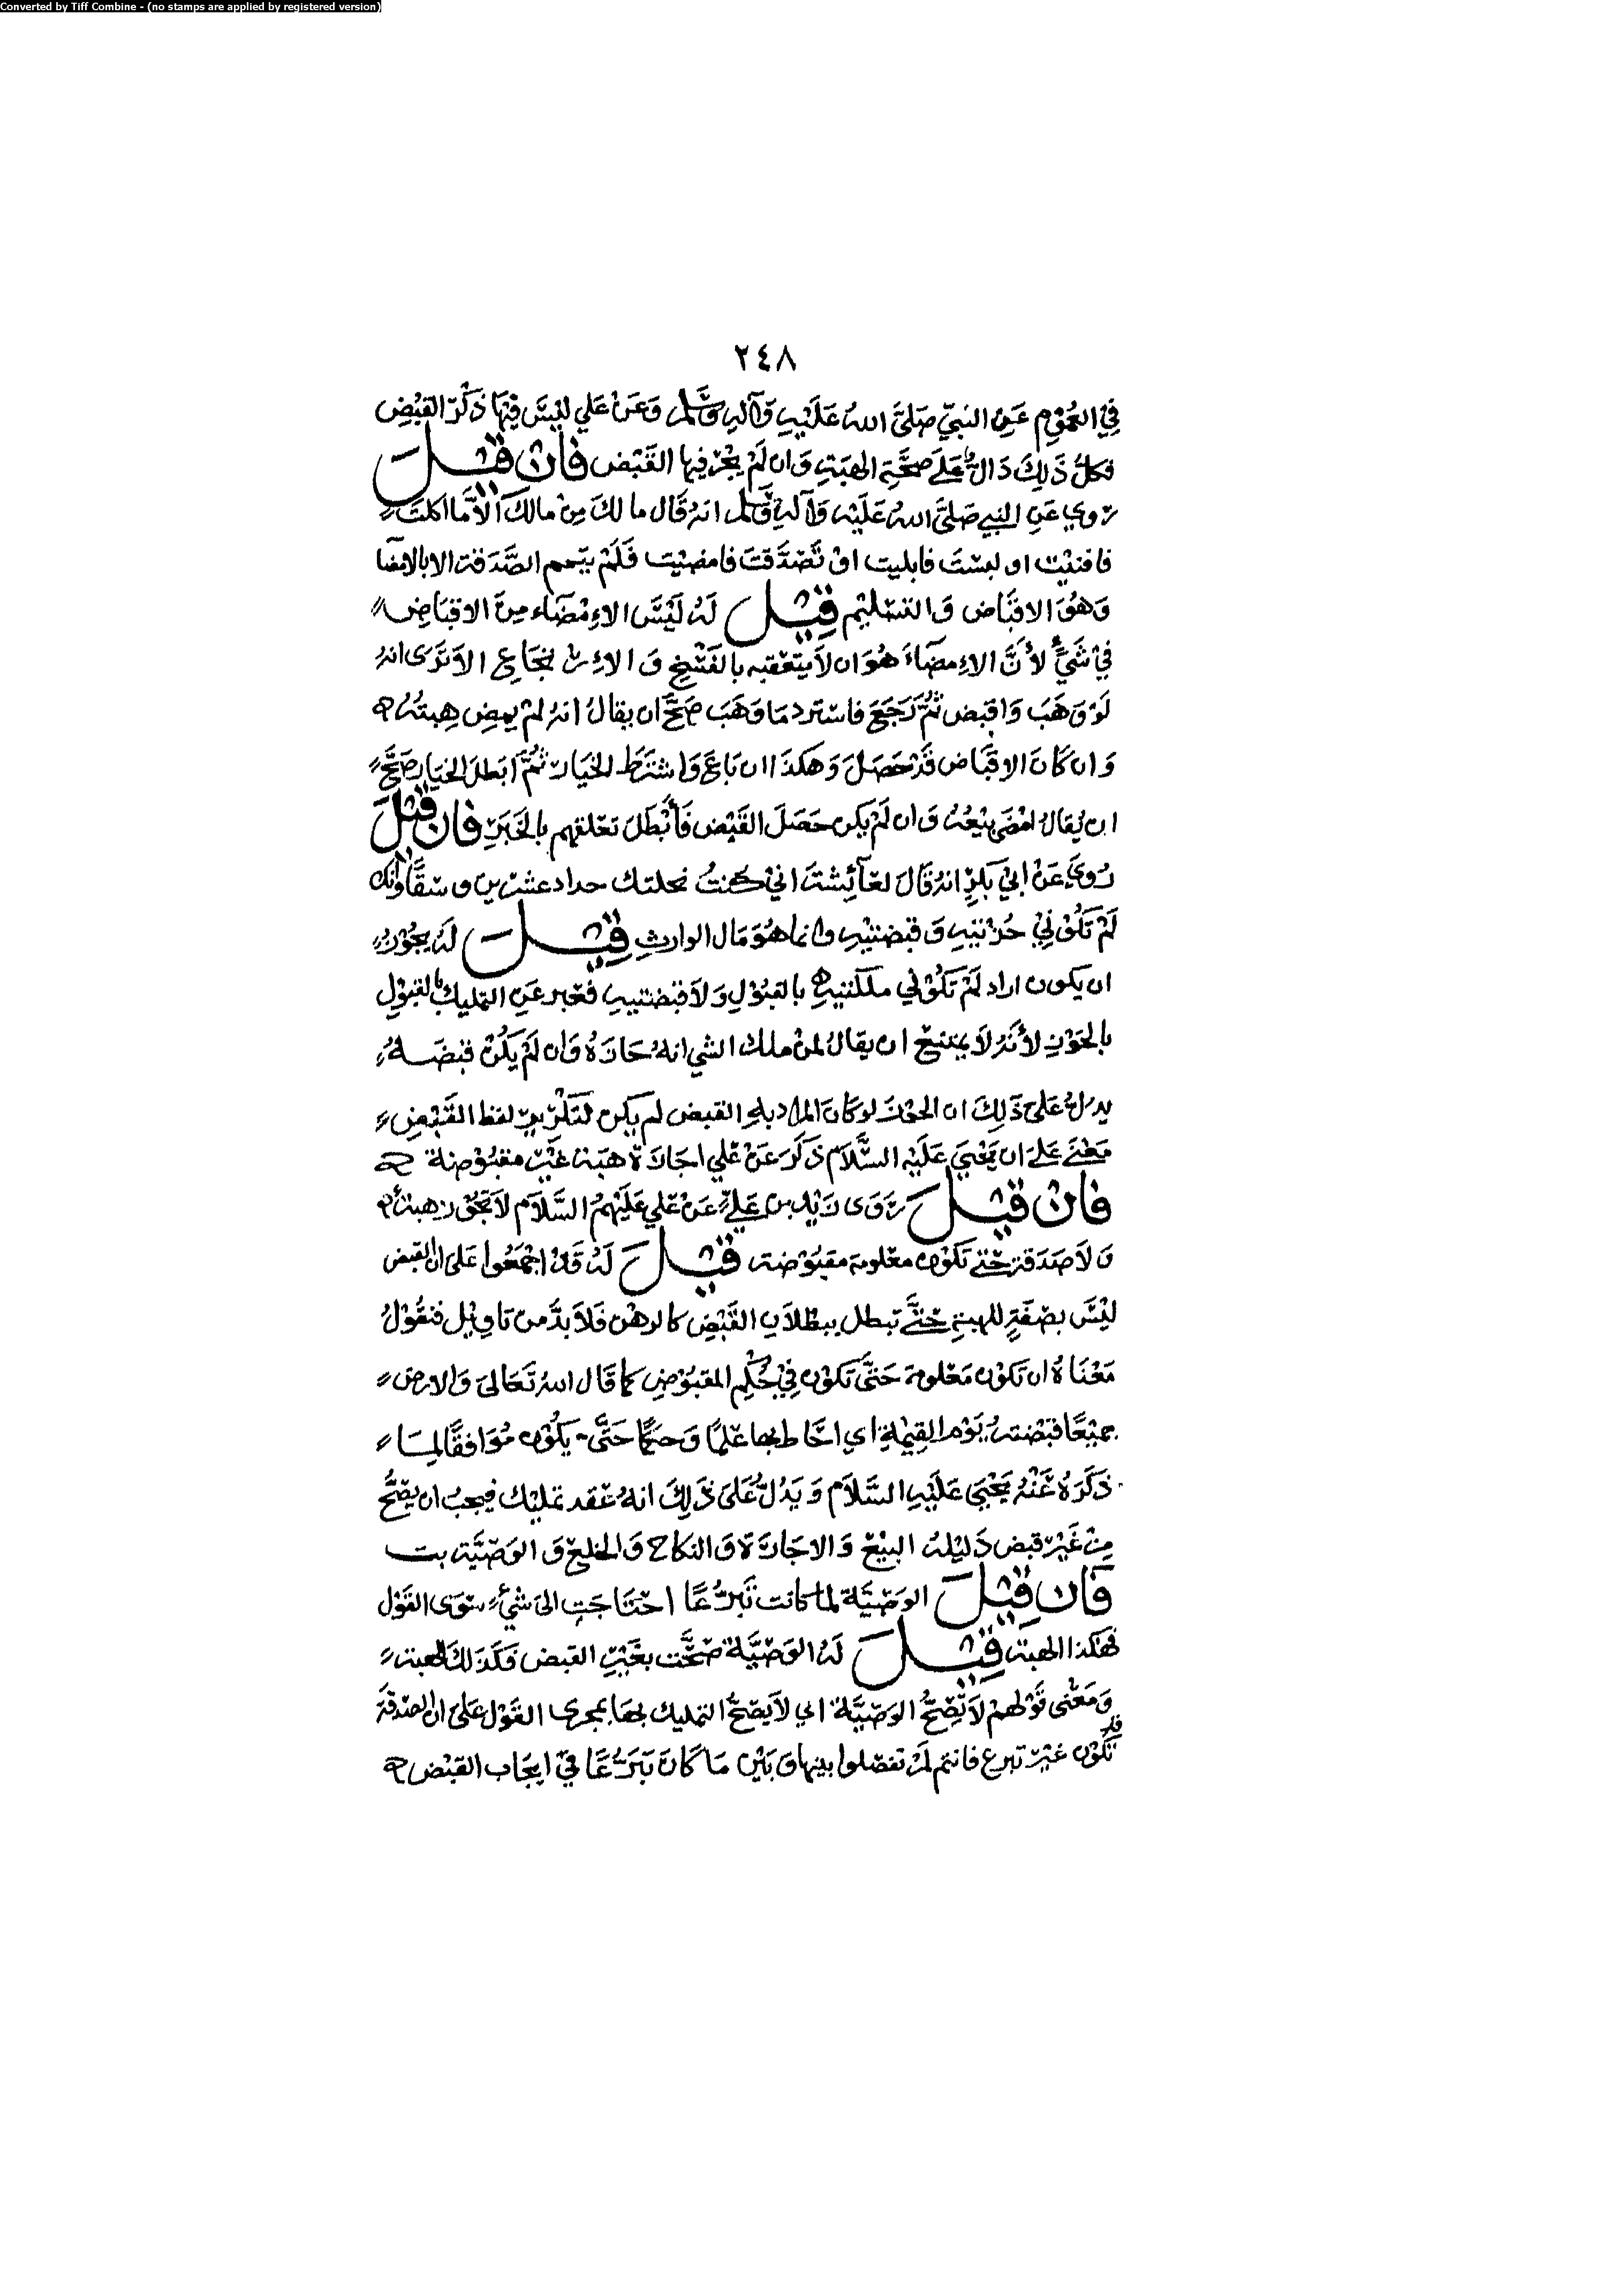 Converted by Tiff Combine - (no stamps are applied by registered version)
٢٤٨
في العموم عن النبي صلى الله عليه وآله وسلم وعن علي ليس فيها ذكر القبض
فكل ذلك دال على صحة الهبة وان لم يجر فيها القبض فان قيل
روي عن النبي صلى الله عليه وآله وسلم انه قال مالك من مالك الا ما اكلت
فافنيت او لبست فابليت او تصدقت فامضيت فلم يتمم الصدقة الا بالامضا
وهو الاقباض والتسليم قيل له ليس الامضاء من الاقباض
في شيء لأن الامضاء هو ان لا يتعقبه بالفسخ والارتجاع الا ترى انه
لو وهب واقبض ثم رجع فاسترد ما وهب صح ان يقال انه لم يمض هبته
وان كان الاقباض قد حصل وهكذا ان باع واشترط الخيار ثم ابطل الخيار صح
ان يقال امضى بيعه وان لم يكن حصل القبض فأبطل تعلقهم بالخبر فان قيل
روي عن ابي بكر انه قال لعائشة اني كنت نحلتك جداد عشرين وسقا وانك
لم تكوني حزتيه وقبضتيه وانما هو مال الوارث قيل له يجوز
ان يكون اراد لم تكوني ملكتيه بالقبول ولا قبضتيه فعبر عن التمليك بالقبول
بالحوز لأنه لا يمتنع ان يقال لمن ملك الشي انه حازه وان لم يكن قبضه
يدل على ذلك ان الحوز لو كان المراد به القبض لم يكن لتكرير لفظ القبض
معنى على ان يحيى عليه السلام ذكر عن علي اجازة هبة غير مقبوضة
فان قيل روى زيد بن علي عن علي عليهم السلام لا تجوز هبة
ولا صدقة حتى تكون معلومة مقبوضة قيل له قد اجمعوا على ان القبض
ليس بصفة للهبة حتى تبطل ببطلان القبض كالرهن فلا بد من تاويل فنقول
معناه ان تكون معلومة حتى تكون في حكم المقبوض كما قال الله تعالى والارض
جميعا قبضته يوم القيمة اي احاط بها علما وحكما حتى يكون موافقا لما
ذكره عنه يحيى عليه السلام ويدل على ذلك انه عقد تمليك فيجب ان يصح
من غير قبض دليله البيع والاجارة والنكاح والخلع والوصية
فان قيل الوصية لما كانت تبرعا احتاجت الى شيء سوى القول
فهكذا الهبة قيل له الوصية صحت بغير القبض فكذلك الهبة
ومعنى قولهم لا تصح الوصية اي لا يصح التمليك بها بمجرى القول على ان الصدقة
قد تكون غير تبرع فانتم لم تفصلوا بينها وبين ما كان تبرعا في ايجاب القبض